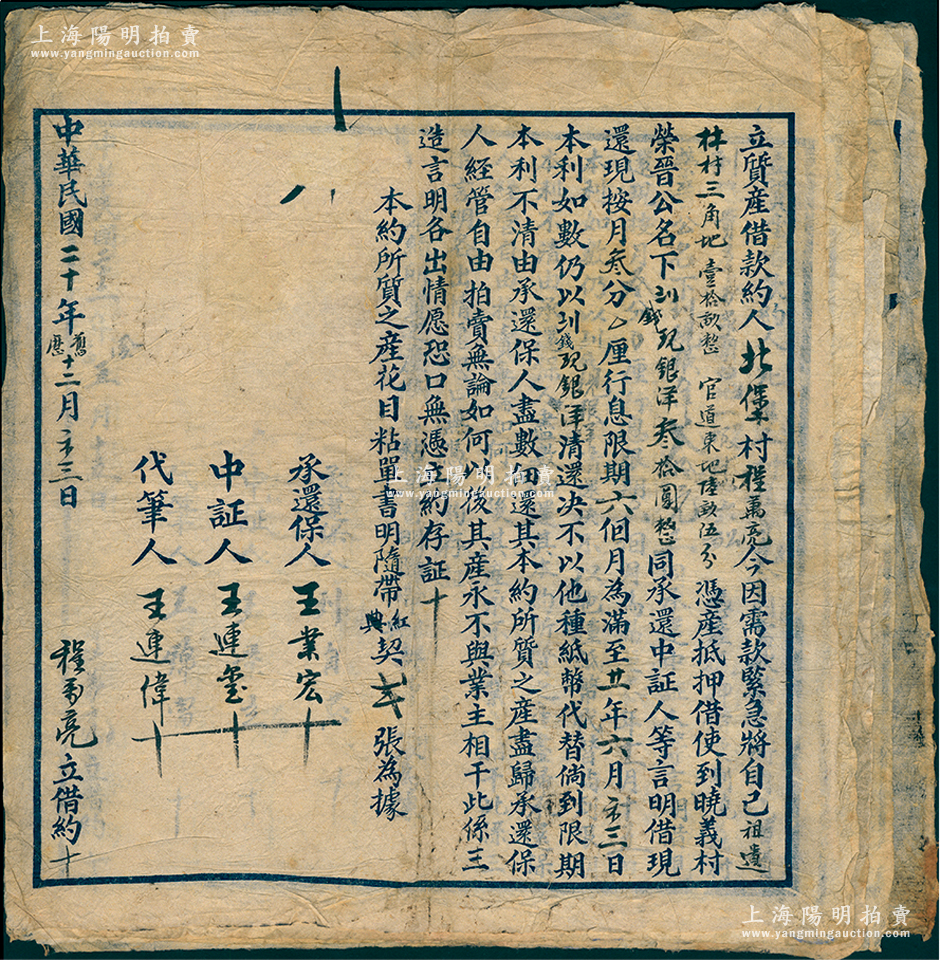 上海陽明拍賣
www.yangmingauction.com
立質産借款約人北保村程萬亮今因需款緊急將自己祖遺
林村三角地壹拾畝整 官道東地陸畝伍分 憑産抵押借使到曉義村
榮晉公名下 錢現銀洋叁拾圓整同承還中証人等言明借現
還現按月叁分 厘行息限期六個月為滿至廿一年六月 三日
本利如數仍以 錢現銀洋清還決不以他種紙幣代替倘到限期
本利不清由承還保人盡數 還其本約所質之産盡歸承還保
人經管自由拍賣無論如何以後其産永不與業主相干此係 
造言明各出情愿恐口無憑立約存証十
本約所質之産花目粘單書明隨帶紅契 張為據
承還保人 王業宏十
中証人 王連 十
代筆人 王連偉十
中華民國二十年舊曆十二月 三日 程萬亮立借約十
上海陽明拍賣
www.yangmingauction.com
上海陽明拍賣
www.yangmingauction.com